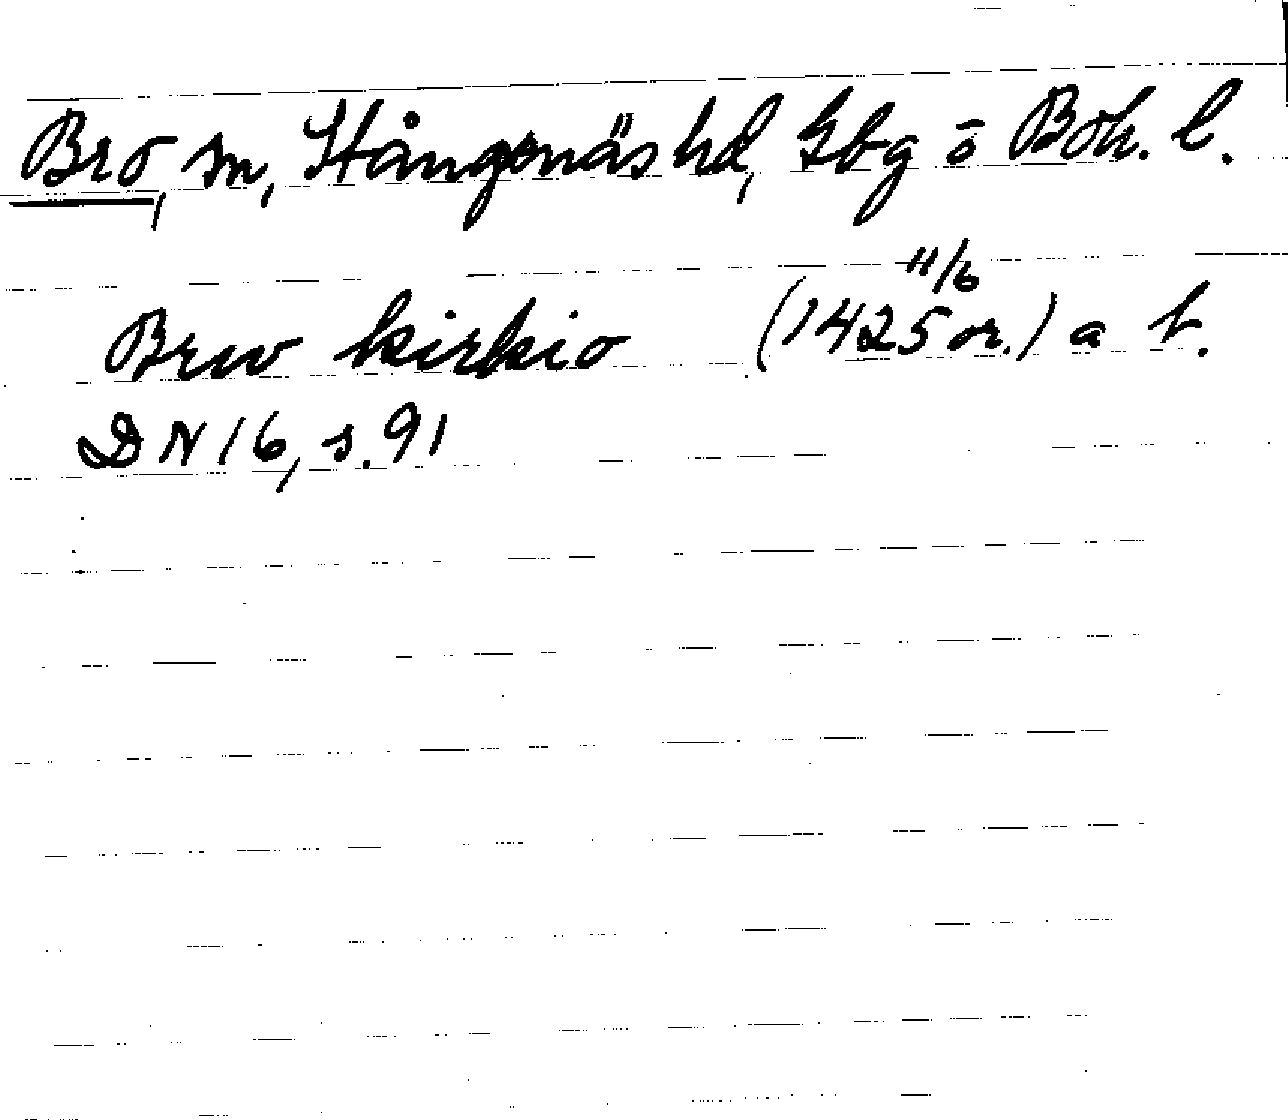 Bro, sn, Stångenäs hd, Gbg o Boh. l.
Brw kirkio (1425 11/6 or.) a b.
DN 16, s. 91